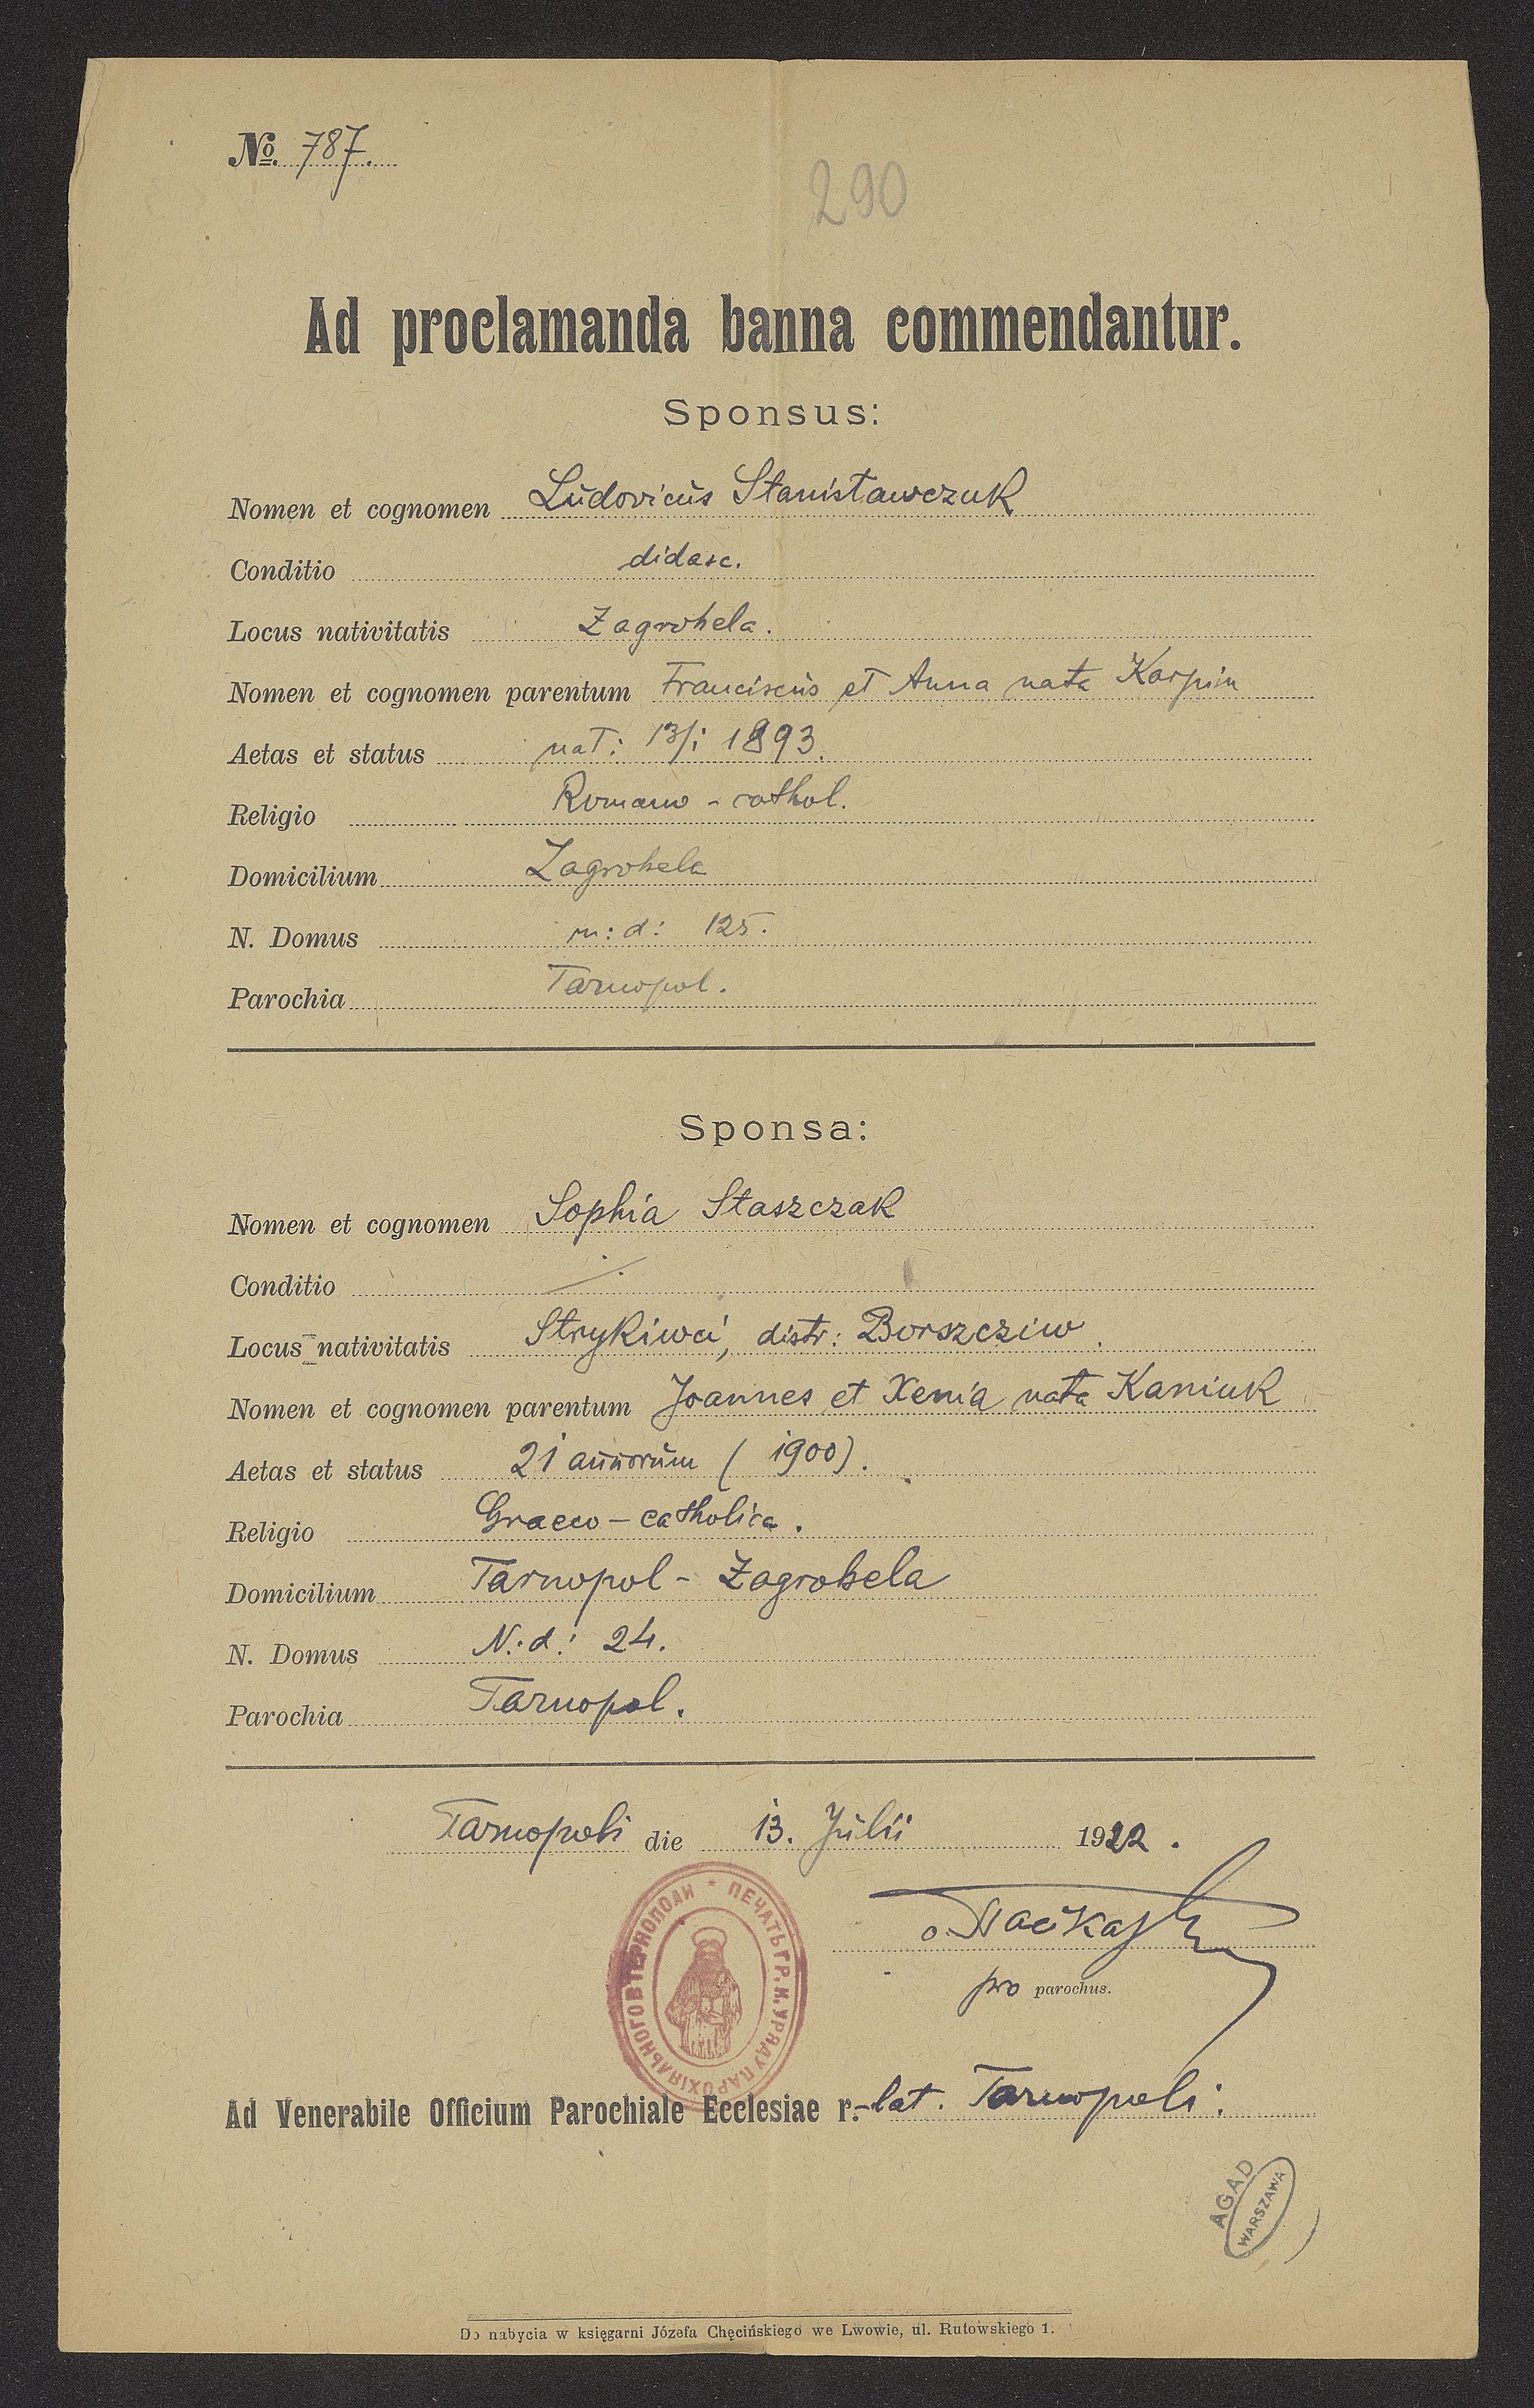 № 787.
290
Ad proclamanda banna commendantur.
Sponsus:
Nomen et cognomen Ludovicus Stanisławczuk
Conditio didasc.
Locus nativitatis Zagrobela.
Nomen et cognomen parentum Franciscus et Anna nata Karpin
Aetas et status nat: 13/i 1893.
Religio Romano - cathol.
Domicilium Zagrobela
N. Domus n: d: 125.
Parochia Tarnopol.
Sponsa:
Nomen et cognomen Sophia Staszczak
Conditio
Locus nativitatis Strykiwci, distr: Borszcziw.
Nomen et cognomen parentum Joannes et Xenia nata Kaniuk
Aetas et status 21 annorum (1900).
Religio Graeco - catholica.
Domicilium Tarnopol - Zagrobela
N. Domus N. d: 24.
Parochia Tarnopol.
Tarnopoli die 13. Julii 1922.
pro parochus.
ПЕЧАТЬ ГР. К. УРЯДУ ПАРОХІЯЛЬНОГО В ТЕРНОПОЛИ *
Ad Venerabile Officium Parochiale Ecclesiae r.-lat. Tarnopoli.
AGAD
WARSZAWA
Do nabycia w księgarni Józefa Chęcińskiego we Lwowie, ul. Rutowskiego 1.